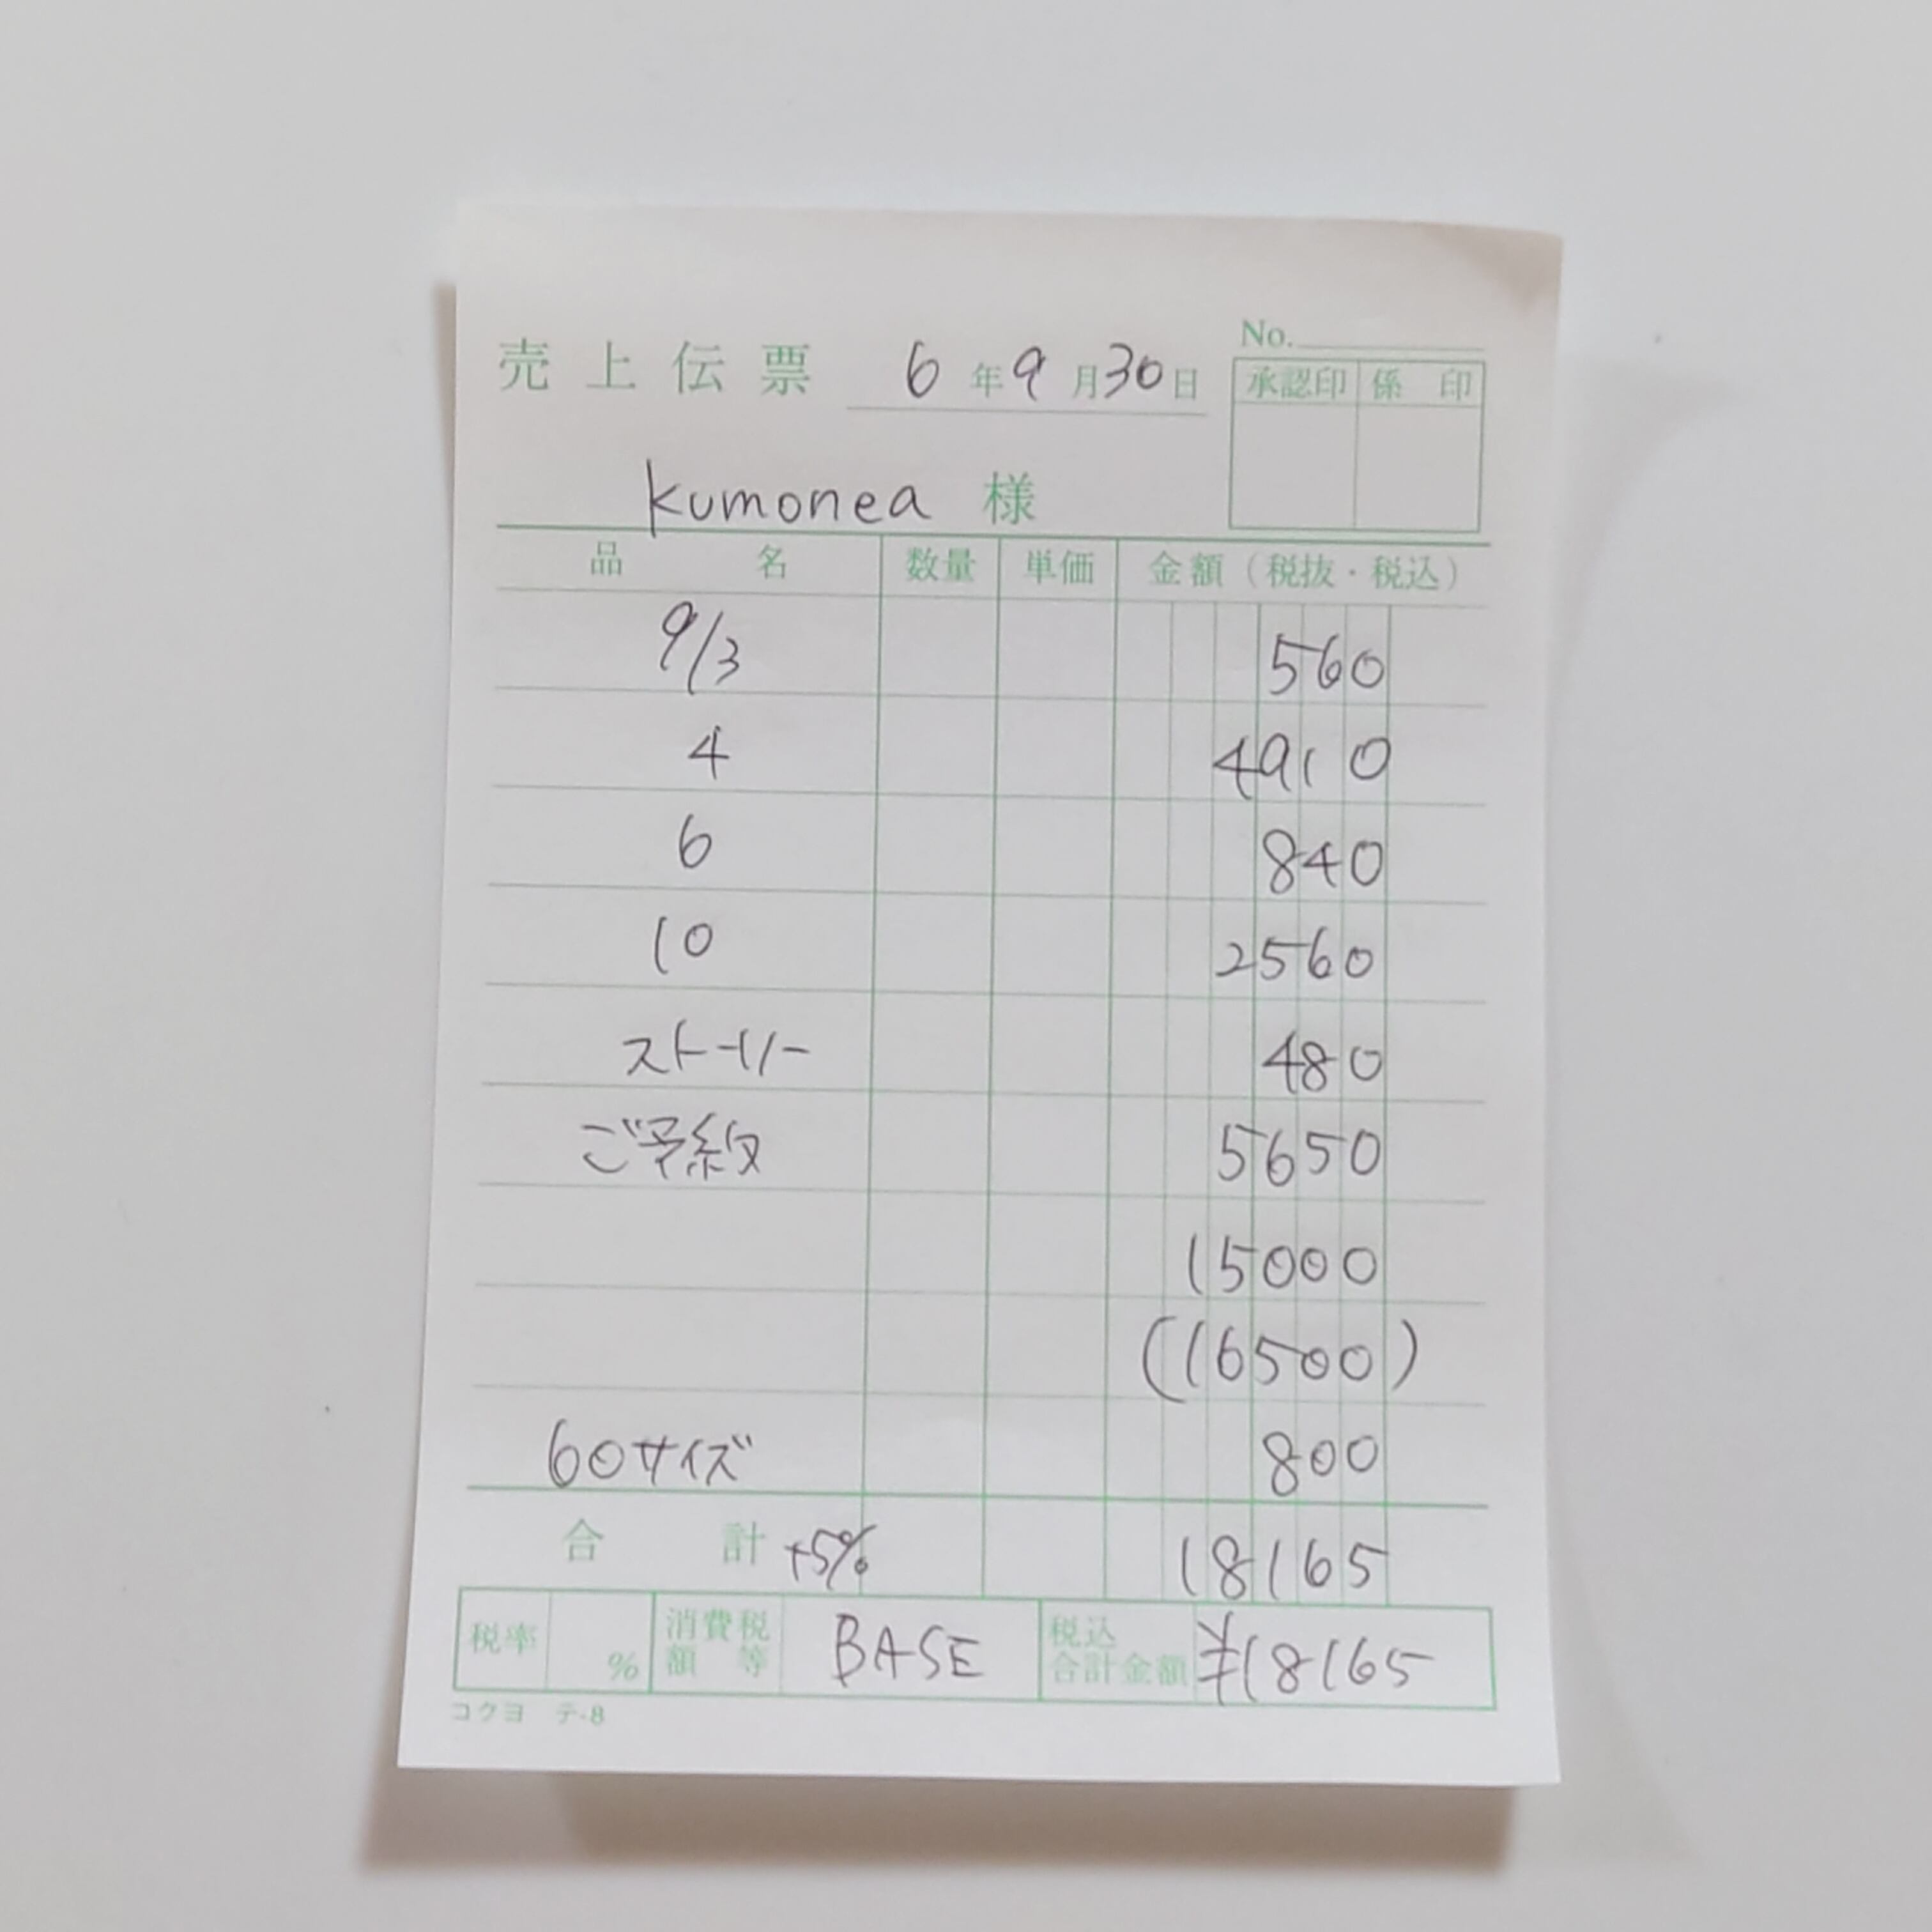 No.
売上伝票 6年9月30日
承認印 係印
kumonea 様
品名 数量 単価 金額（税抜・税込）
9/3 560
4 4910
6 840
10 2560
ストーリー 480
ご予約 5650
15000
(16500)
60サイズ 800
合計 +5% 18165
税率 % 消費税額等 BASE 税込合計金額 ¥18165
コクヨ テ-8